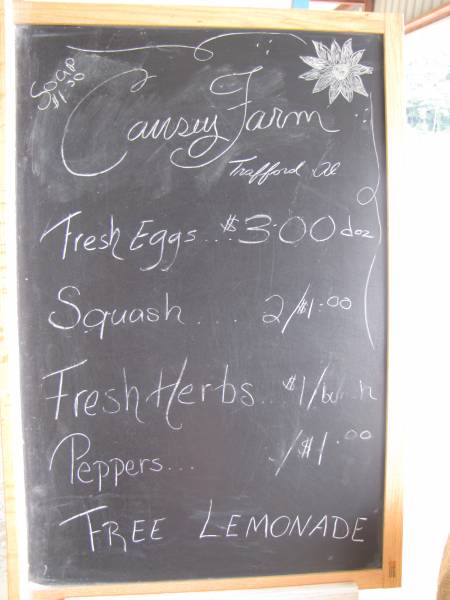 Soap
$1.50
Causey Farm
Trafford Al
Fresh Eggs... $3.00 doz
Squash.... 2/$1.00
Fresh Herbs... $1/bunch
Peppers... /$1.00
FREE LEMONADE